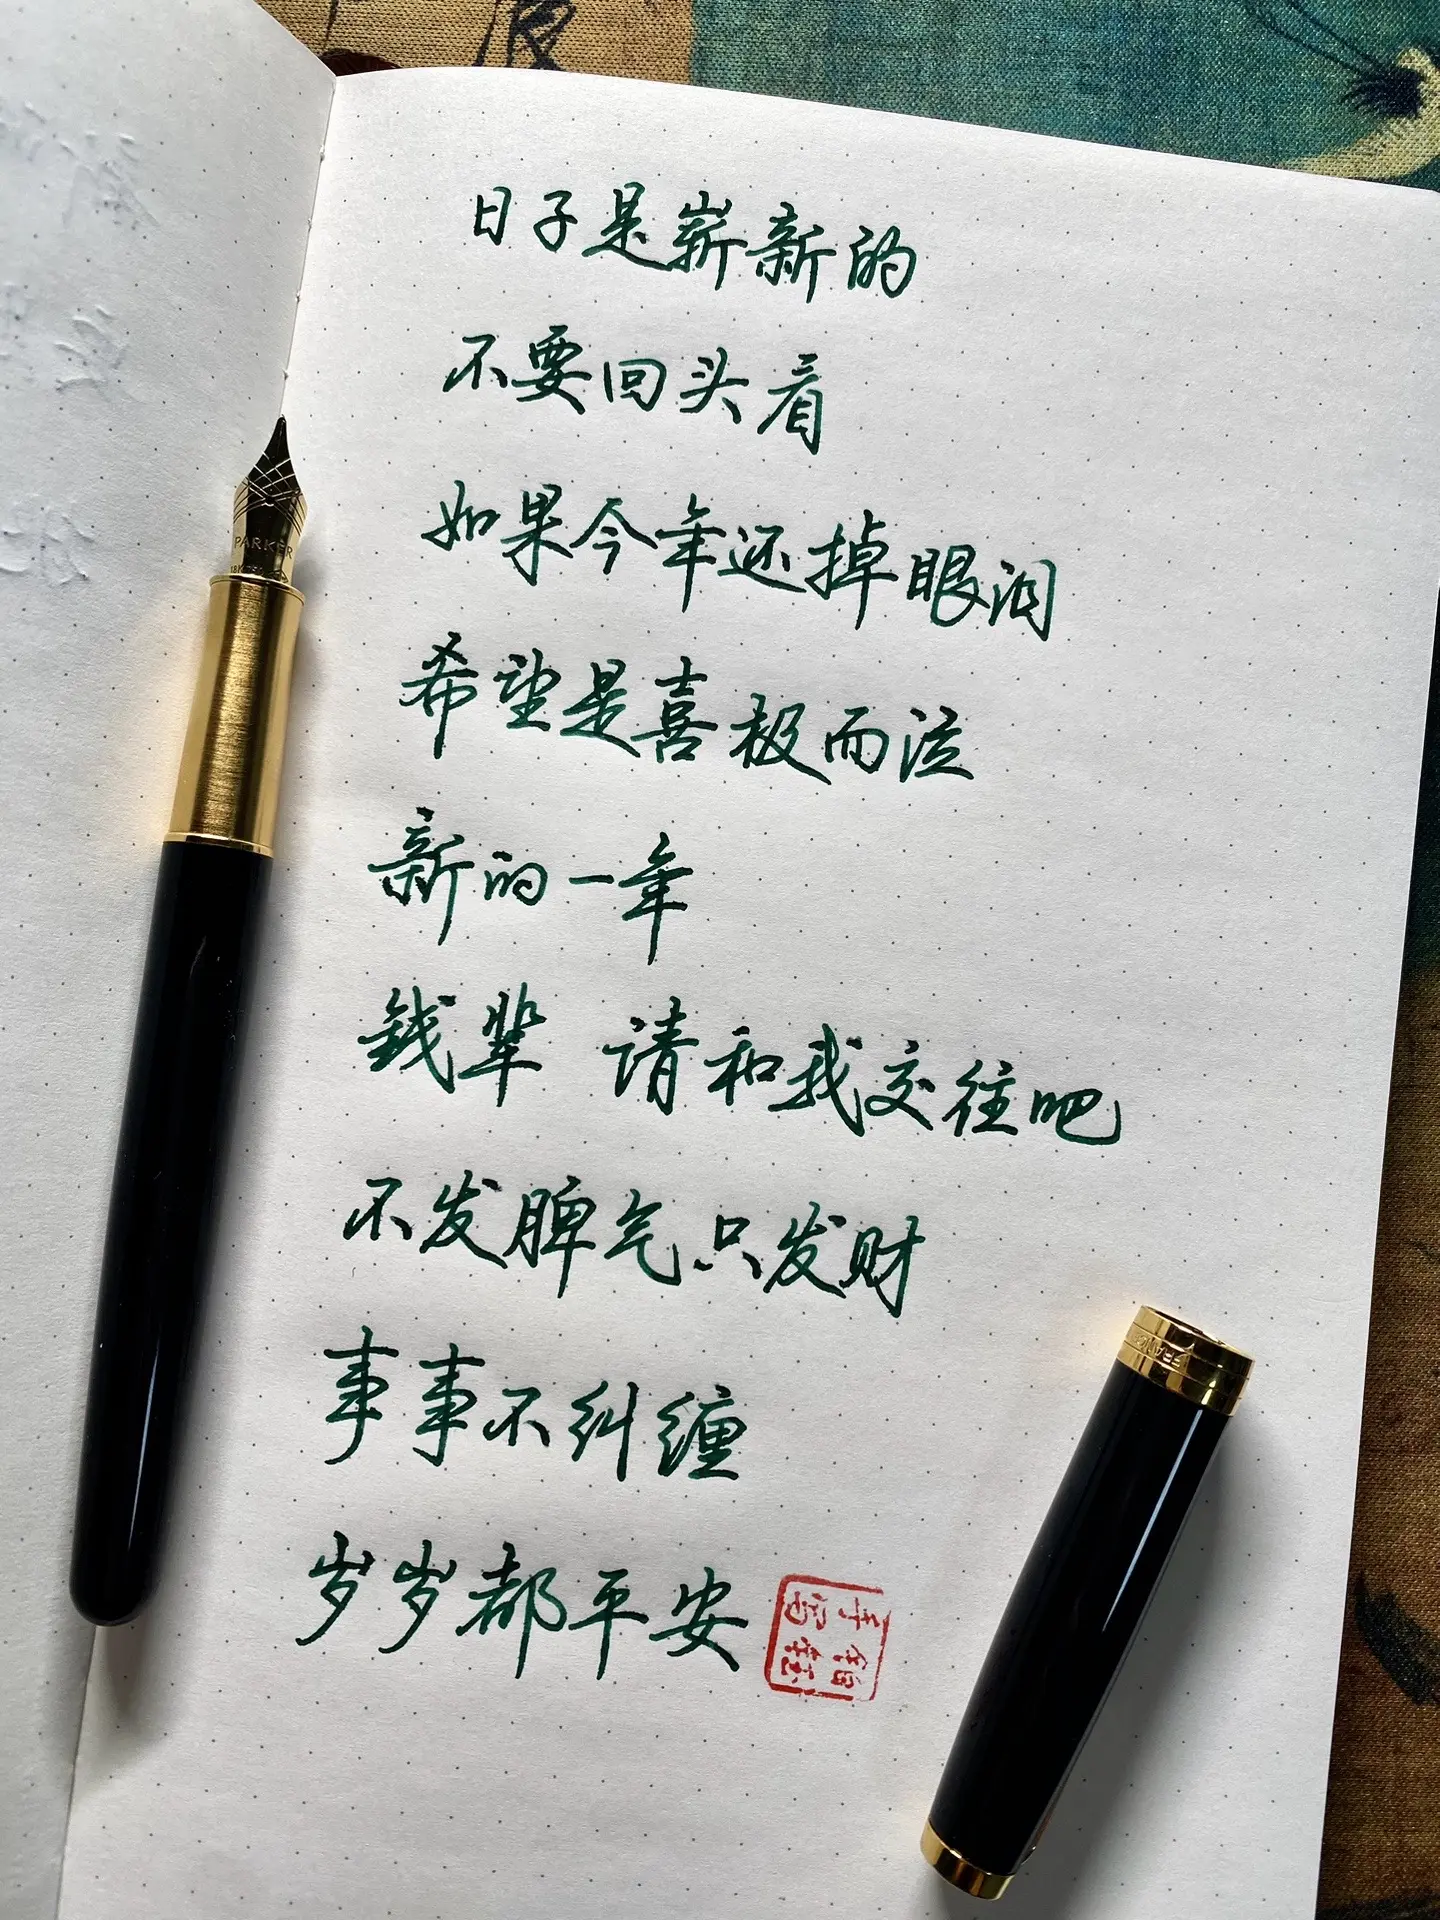 日子是崭新的
不要回头看
如果今年还掉眼泪
希望是喜极而泣
新的一年
钱辈 请和我交往吧
不发脾气只发财
事事不纠缠
岁岁都平安
PARKER
18K